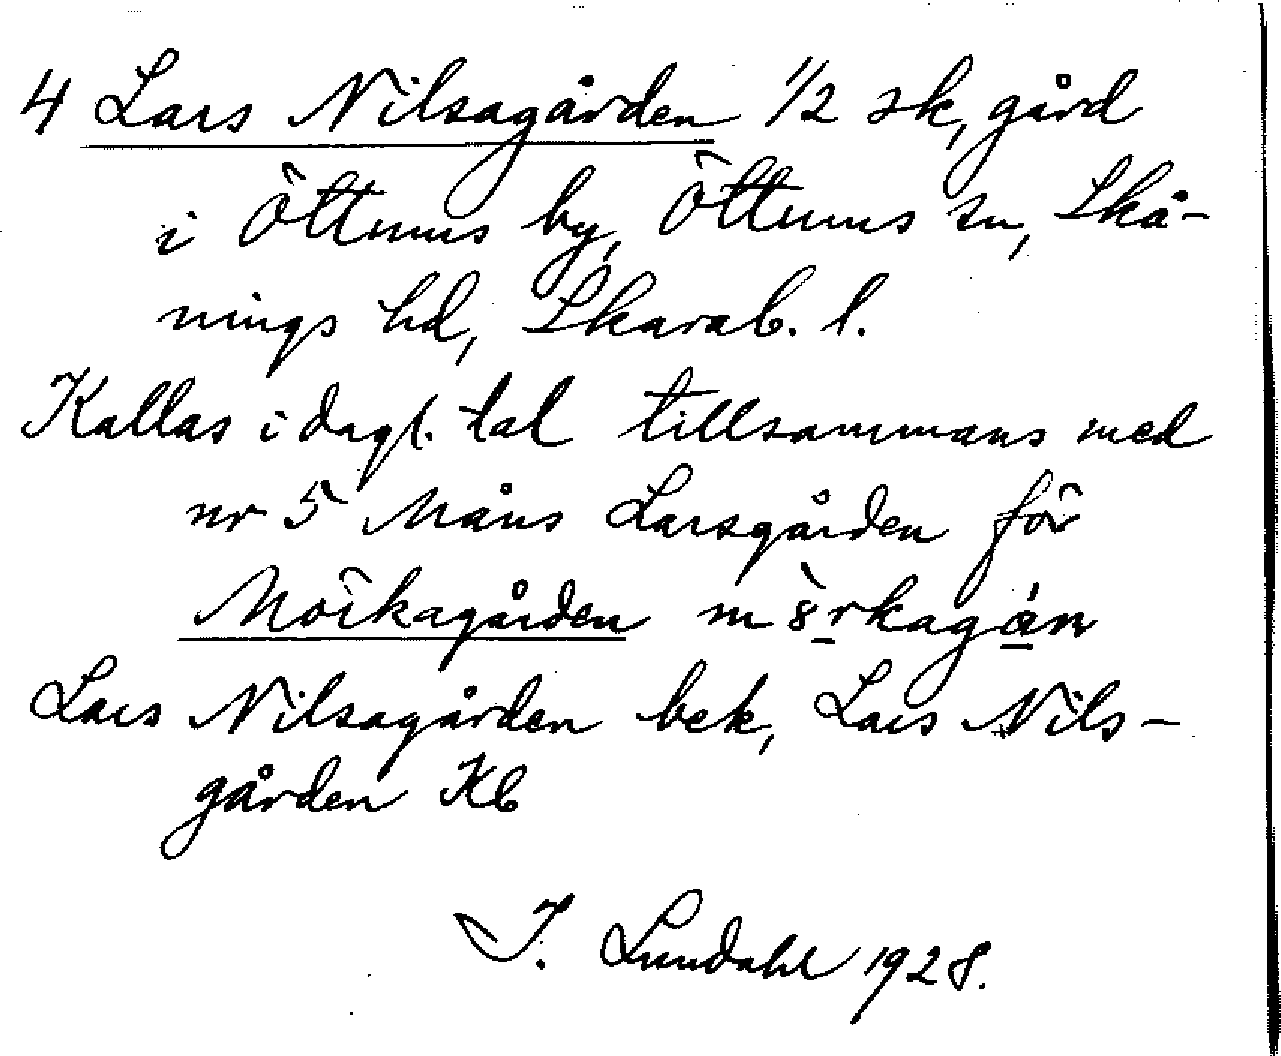 4 Lars Nilsagården 1/2 sk, gård
i Öttums by, Öttums sn, Skå-
nings hd, Skarab. l.
Kallas i dagl. tal tillsammans med
nr 5 Måns Larsgården för
Mörkagården
Lars Nilsagården bek, Lars Nils-
gården Kb
I. Lundahl 1928.